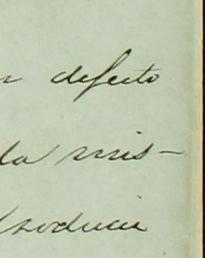 r defecto
la mis-
producir